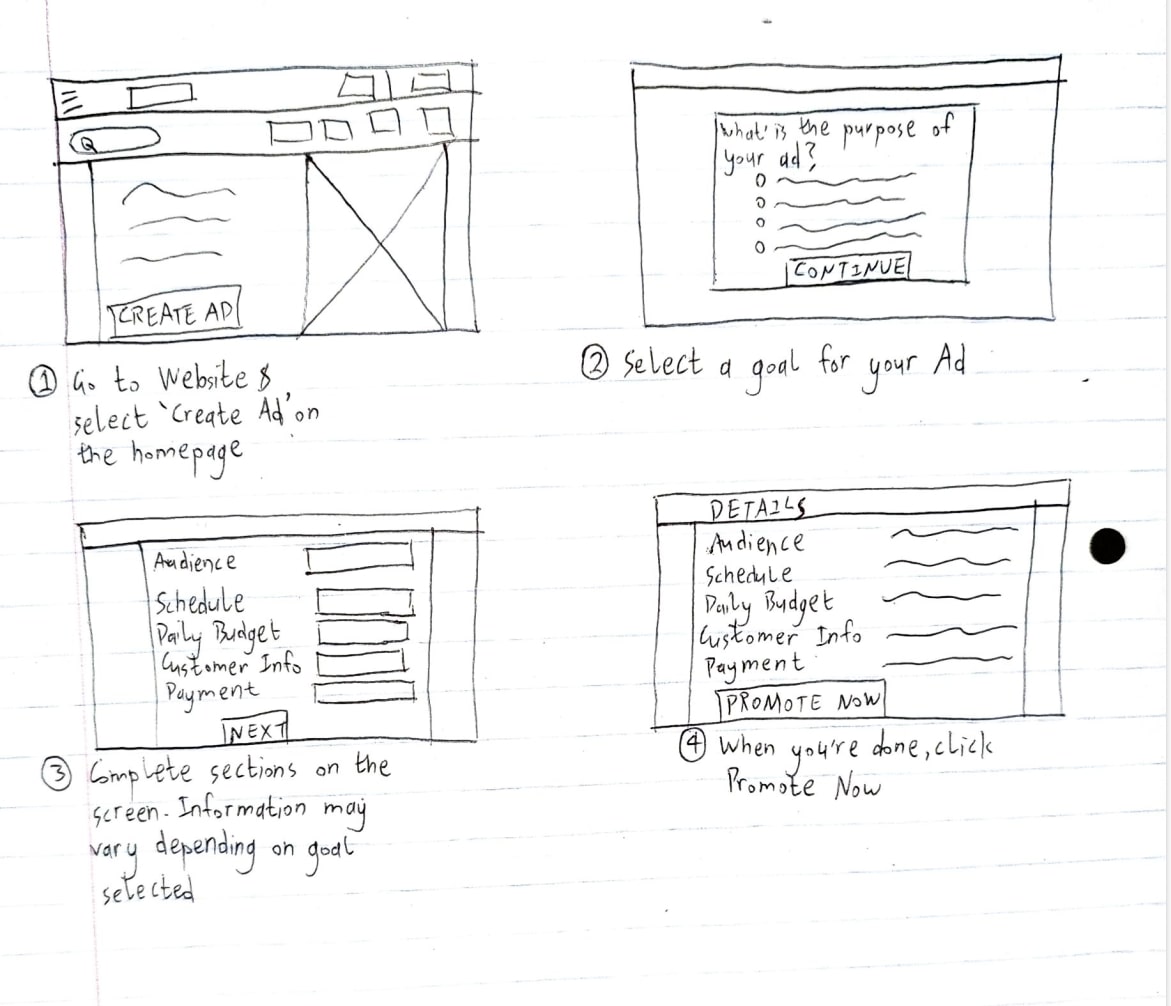 CREATE AD
① Go to Website &
select 'Create Ad' on
the homepage
What is the purpose of
your ad?
CONTINUE
② Select a goal for your Ad
Audience
Schedule
Daily Budget
Customer Info
Payment
NEXT
③ Complete sections on the
screen. Information may
vary depending on goal
selected
DETAILS
Audience
Schedule
Daily Budget
Customer Info
Payment
PROMOTE NOW
④ When you're done, click
Promote Now